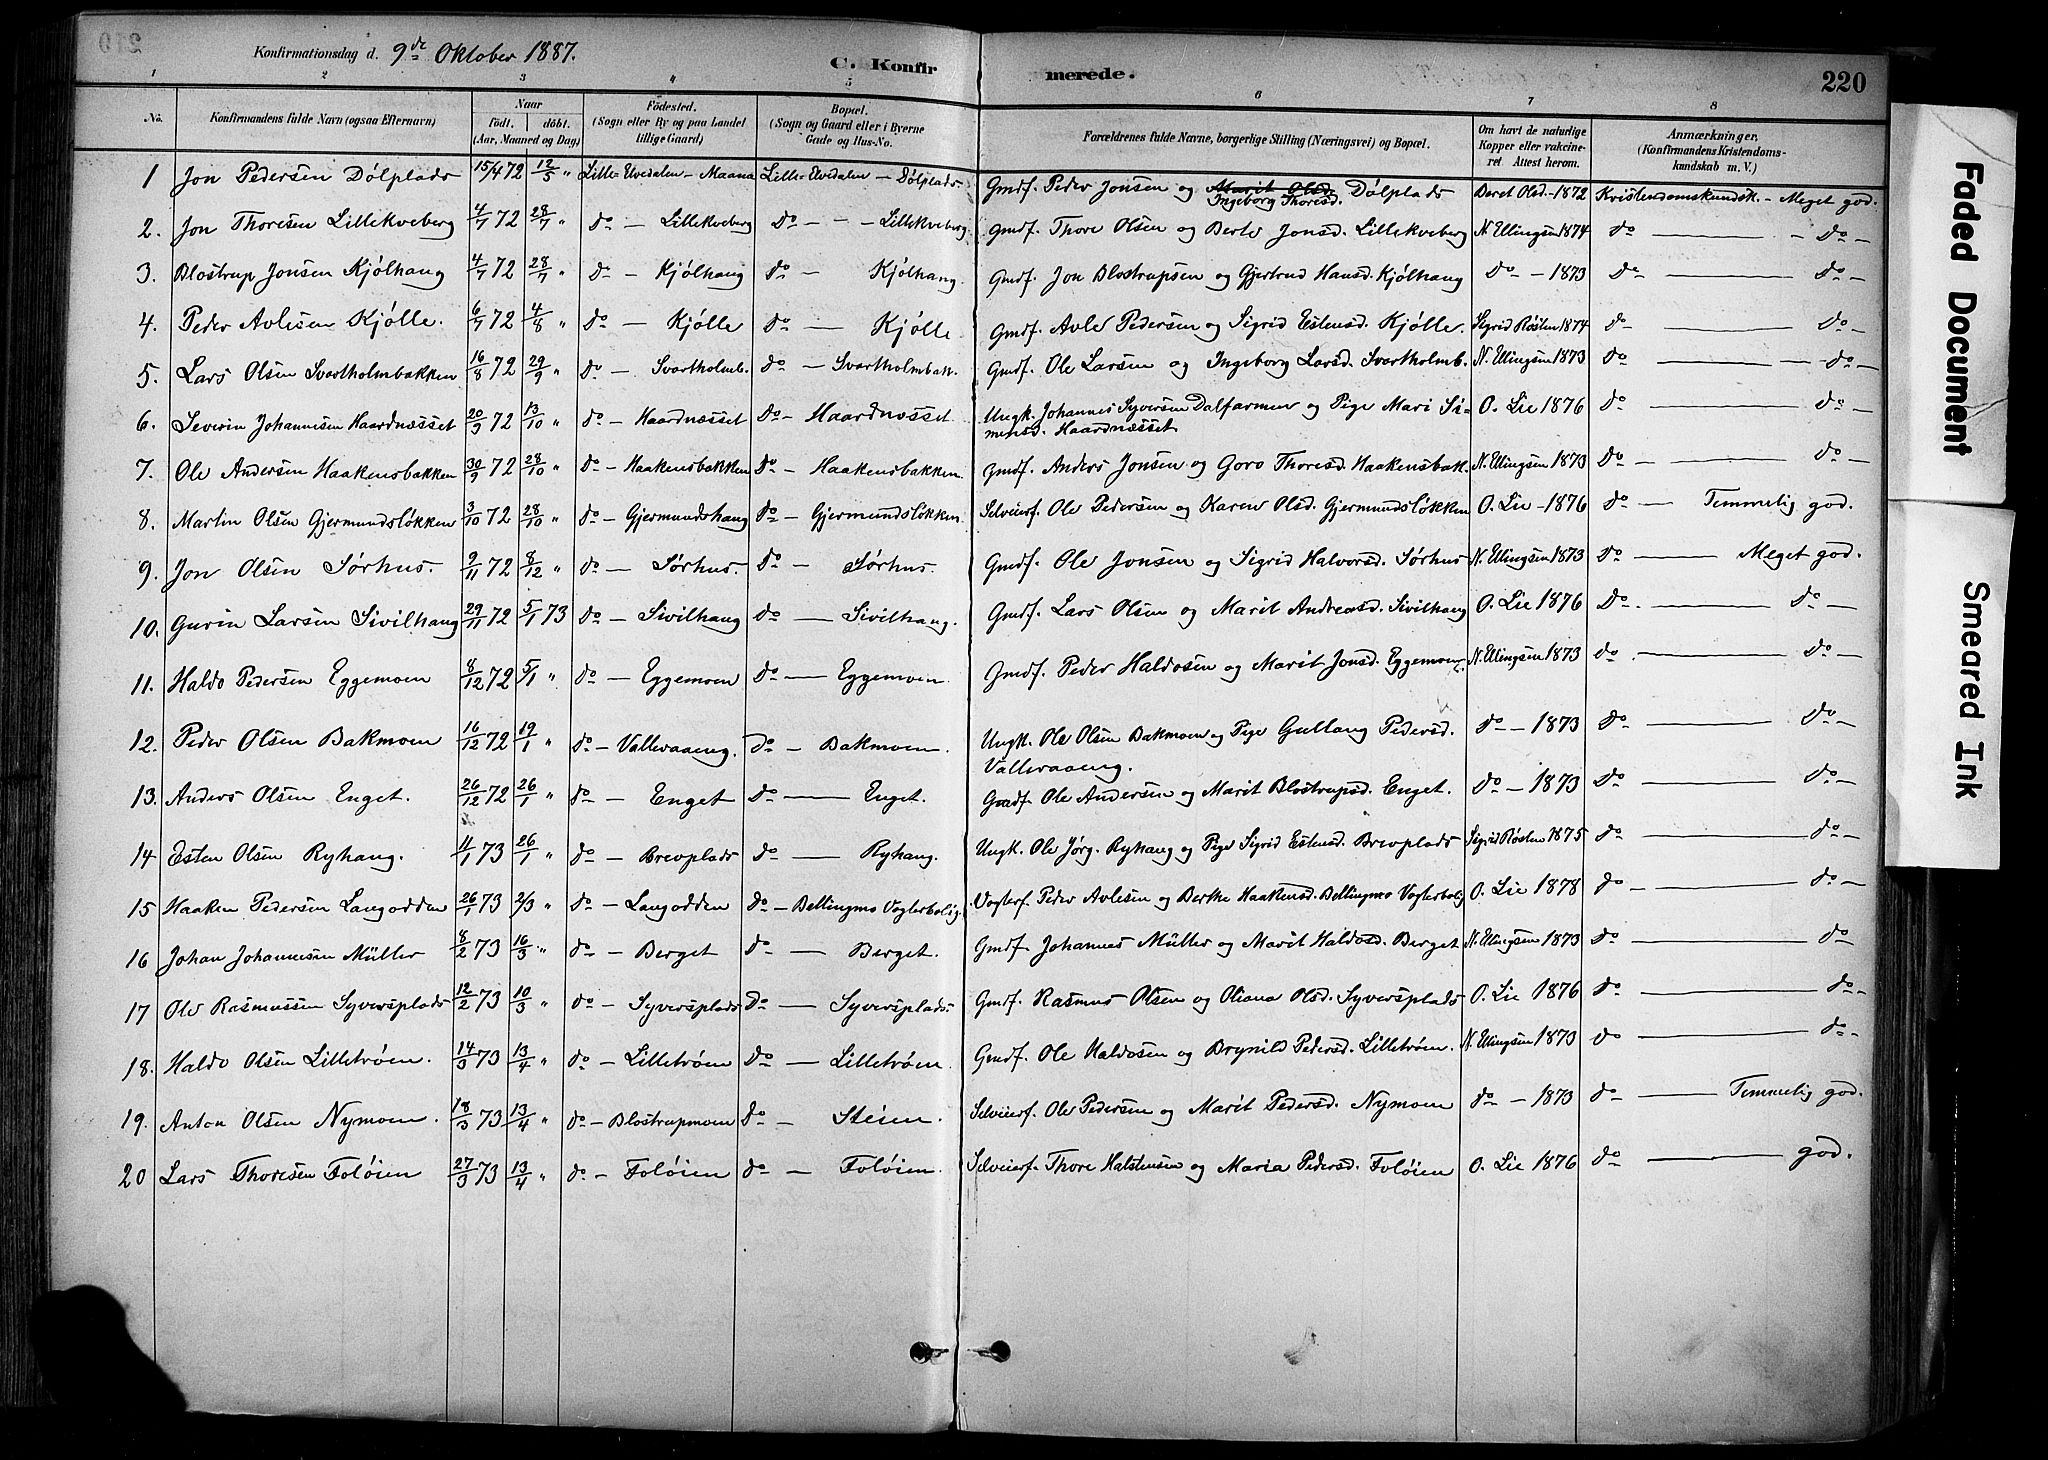 Konfirmationsdag d. 9de Oktober 1887.
C. Konfirmerede.
220
1 2 3 " 5 6 7 8
No. | Konfirmandens fulde Navn (ogsaa Efternavn) | Naar født. døbt. (Aar, Maaned og Dag) | Fødested. (Sogn eller By og paa Landet tillige Gaard) | Bopæl. (Sogn og Gaard eller i Byerne Gade og Hus-No. | Forældrenes fulde Navne, borgerlige Stilling (Næringsvei) og Bopæl. | Om havt de naturlige Kopper eller vakcineret Attest herom. | Anmærkninger. (Konfirmandens Kristendomskundskab m. V.)
1 Jon Pedersen Dölplads 15/4 72 12/5 " Lille-Elvedalen - Maana Lille-Elvedalen - Dölplads Gmdf. Peder Jonsen og Marit Olsd. Ingeborg Thoresd. Dölplads Beret Olsd. - 1872 Kristendomskundsk. - Meget god.
2. Jon Thoresen Lillekveberg 4/7 72 28/7 " do - Lillekveberg do - - Lillekveberg Gmdf. Thore Olsen og Berte Jonsd. Lillekveberg N. Ellingsen 1874 do - do -
3. Blostrup Jonsen Kjölhaug 4/7 72 28/7 " do - Kjölhaug do - Kjölhaug. Gmdf. Jon Blostrupsen og Gjertrud Hansd. Kjölhaug do - 1873 do - do -
4. Peder Avlesen Kjölle. 6/7 72 4/8 " do - Kjölle do - Kjölle. Gmdf. Avle Pedersen og Sigrid Estensd. Kjölle. Sigrid Røsten 1874 do - do -
5. Lars Olsen Svartholmbakken 16/8 72 29/9 " do - Svartholmb. do - Svartholmbak. Gmdf. Ole Larsen og Ingeborg Larsd. Svartholmb. N. Ellingsen 1873 do - do -
6. Severin Johannesen Haardnæsset 20/9 72 13/10 " do - Haardnæsset do - Haardnæsset. Ungk. Johannes Syversen Dalfarmen og Pige Mari Simensd. Haardnæsset O. Lie 1876 do - do -
7. Ole Andersen Haakensbakken 30/9 72 28/10 " do - Haakensbakken do - Haakensbakken. Gmdf. Anders Jonsen og Goro Thoresd. Haakensbak. N. Ellingsen 1873 do - do -
8. Martin Olsen Gjermundsløkken 3/10 72 28/10 " do - Gjermundshaug do - Gjermundsløkken. Selveierf. Ole Pedersen og Karen Olsd. Gjermundsløkken O. Lie - 1876 do - Temmelig god.
9. Jon Olsen Sørhus. 9/11 72 8/12 " do - Sørhus. do - Sørhus. Gmdf. Ole Jonsen og Sigrid Halvorsd. Sørhus N. Ellingsen 1873 do - Meget god.
10. Gurin Larsen Sivilhaug 29/11 72 5/1 73 do - Sivilhaug do - Sivilhaug. Gmdf. Lars Olsen og Marit Andreasd. Sivilhaug O. Lie 1876 do. - do -
11. Haldo Pedersen Eggemoen 8/12 72 5/1 " do - Eggemoen do - Eggemoen. Gmdf. Peder Haldosen og Marit Jonsd. Eggemoen. N. Ellingsen 1873 do. - do -
12. Peder Olsen Bakmoen 16/12 72 19/1 " do - Vallevaaeng. do - Bakmoen. Ungk. Ole Olsen Bakmoen og Pige Gullaug Pedersd. Vallevaaeng. do - 1873 do - do -
13. Anders Olsen Enget. 26/12 72 26/1 " do - Enget do - Enget. Gmdf. Ole Andersen og Marit Blostrupsd. Enget. do - 1873 do - do -
14 Esten Olsen Ryhaug. 11/1 73 26/1 " do - Brevplads do - Ryhaug. Ungk. Ole Jørg. Ryhaug og Pige Sigrid Estensd. Brevplads Sigrid Røsten 1875 do - do -
15 Haaken Pedersen Langodden 26/1 73 2/3 " do - Langodden do - Bellingmo Vogterbolig. Vogterf. Peder Avlesen og Berthe Haakensd. Bellingmo Vogterbolig O. Lie 1878 do - do -
16 Johan Johannesen Müller 8/2 73 16/3 " do - Berget do - Berget. Gmdf. Johannes Müller og Marit Haldosd. Berget N. Ellingsen 1873 do - do
17 Ole Rasmussen Syversplads 12/2 73 10/3 " do - Syversplads do - Syversplads. Gmdf. Rasmus Olsen og Oliana Olsd. Syversplads O. Lie 1876 do - do -
18. Haldo Olsen Lilletrøen. 14/3 73 13/4 " do - Lilletrøen do - Lilletrøen. Gmdf. Ole Haldosen og Brynild Pedersd. Lilletrøen. N. Ellingsen 1873 do - do -
19. Anton Olsen Nymoen. 18/3 73 13/4 " do - Blostrupmoen do - Steien. Selveierf. Ole Pedersen og Marit Pedersd. Nymoen do - 1873 do - Temmelig god.
20 Lars Thoresen Foløien 27/3 73 13/4 " do - Foløien do - Foløien. Selveierf. Thore Halstensen og Maria Pedersd. Foløien O. Lie 1876 do - god.
Faded Document
Smeared Ink